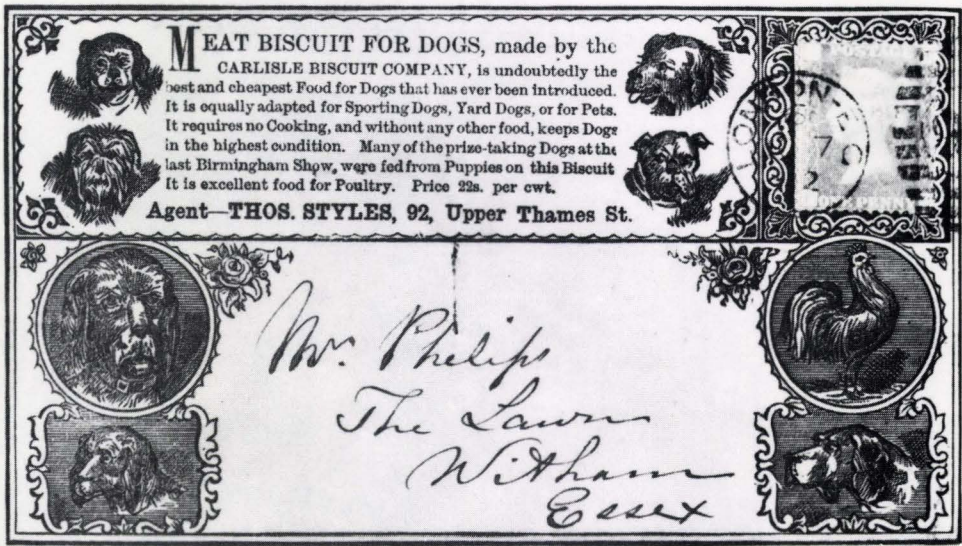 MEAT BISCUIT FOR DOGS, made by the
CARLISLE BISCUIT COMPANY, is undoubtedly the
best and cheapest Food for Dogs that has ever been introduced.
It is equally adapted for Sporting Dogs, Yard Dogs, or for Pets.
It requires no Cooking, and without any other food, keeps Dogs
in the highest condition. Many of the prize-taking Dogs at the
last Birmingham Show, were fed from Puppies on this Biscuit
It is excellent food for Poultry. Price 22s. per cwt.
Agent—THOS. STYLES, 92, Upper Thames St.
POSTAGE
LONDON-E
7
2
ONE PENNY
Mr. Phelips
The Lawn
Witham
Essex